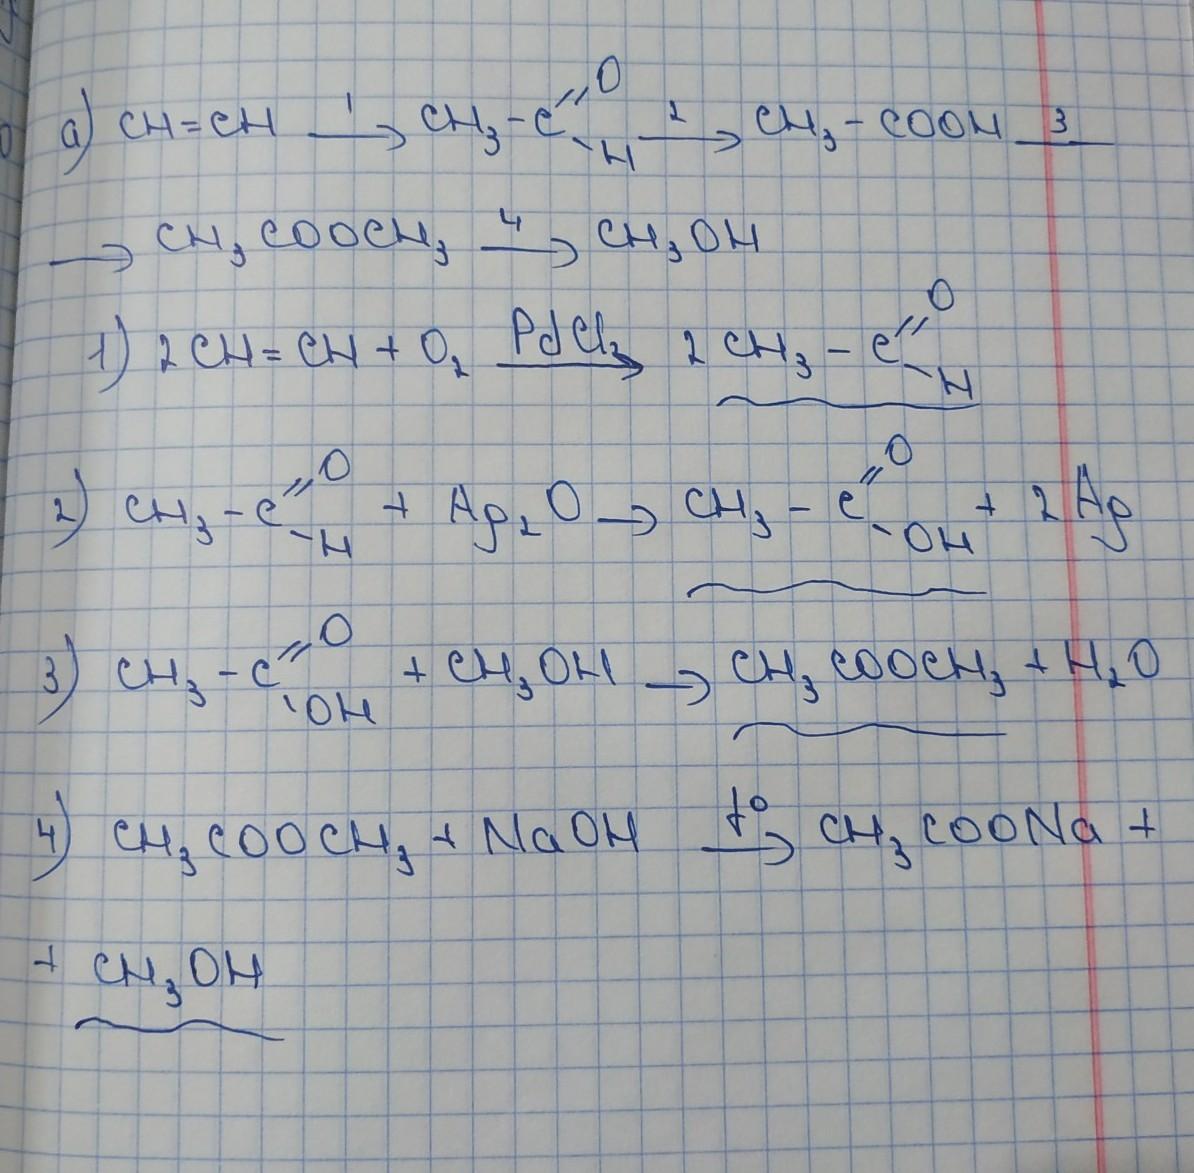 a) CH=CH —1→ CH₃-C(=O)-H —2→ CH₃-COOH —3
→ CH₃COOCH₃ —4→ CH₃OH
1) 2CH=CH + O₂ —PdCl₂→ 2CH₃-C(=O)-H
2) CH₃-C(=O)-H + Ag₂O → CH₃-C(=O)-OH + 2Ag
3) CH₃-C(=O)-OH + CH₃OH → CH₃COOCH₃ + H₂O
4) CH₃COOCH₃ + NaOH —t°→ CH₃COONa +
+ CH₃OH